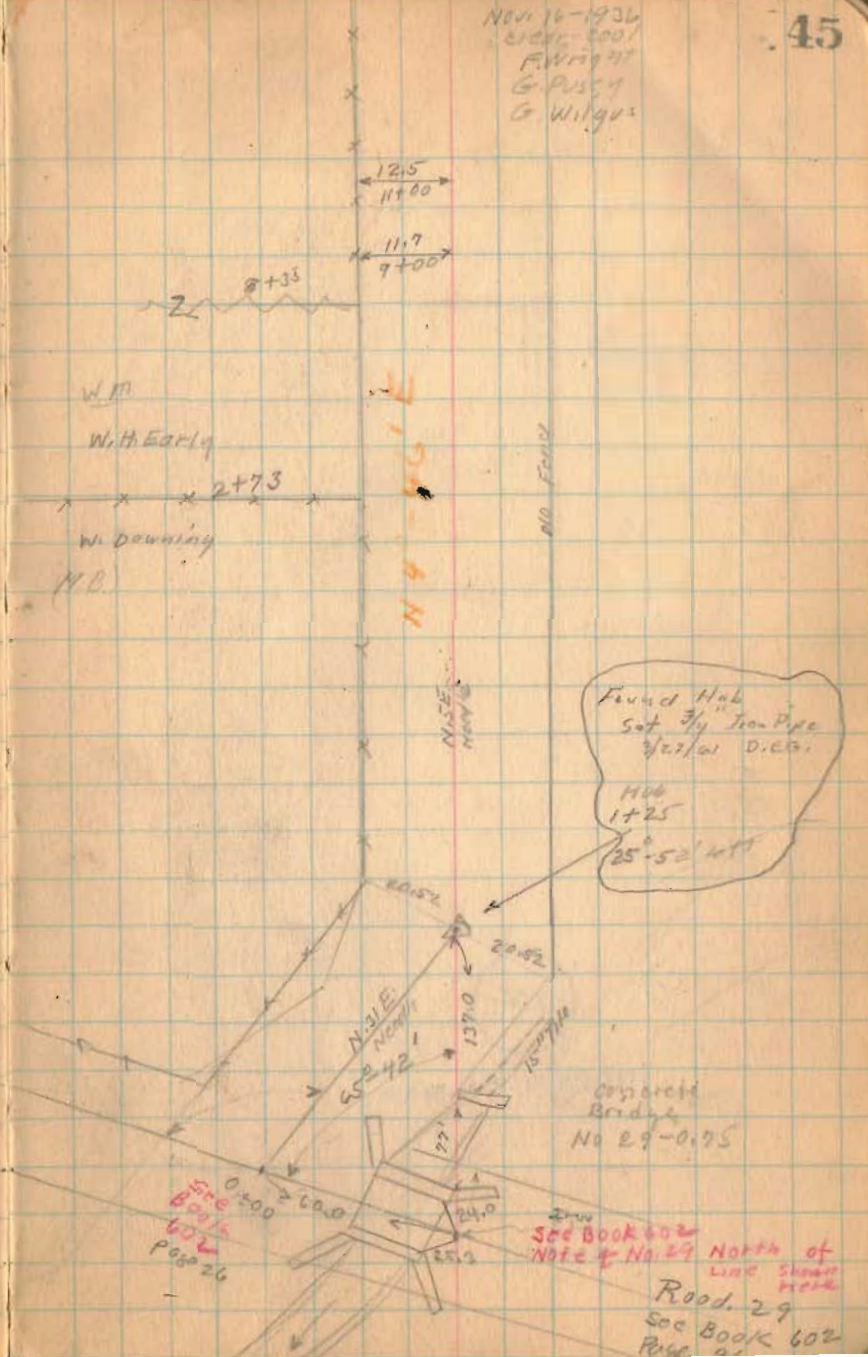 Nov. 16-1936
clear-cool
F. Wright
G. Pusey
G. Wilgus
45
12.5
11+00
11.7
9+00
8+35
W.M
W.H. Early
2+73
W. Downing
N 4°-46' E
No Fence
N.5E.
Needle
Found Hub
Set 3/4" Iron Pipe
Hub
1+25
25°-52' Left
20.52
20.52
N.31 E.
Needle
65°-42'
137.0
77'
Concrete
Bridge
No 29-0.75
0+00
60.0
24.0
25.3
See
Book
602
Page 26
See Book 602
Note of No. 29 North of
Line Shown
Here
Road. 29
See Book 602
Page